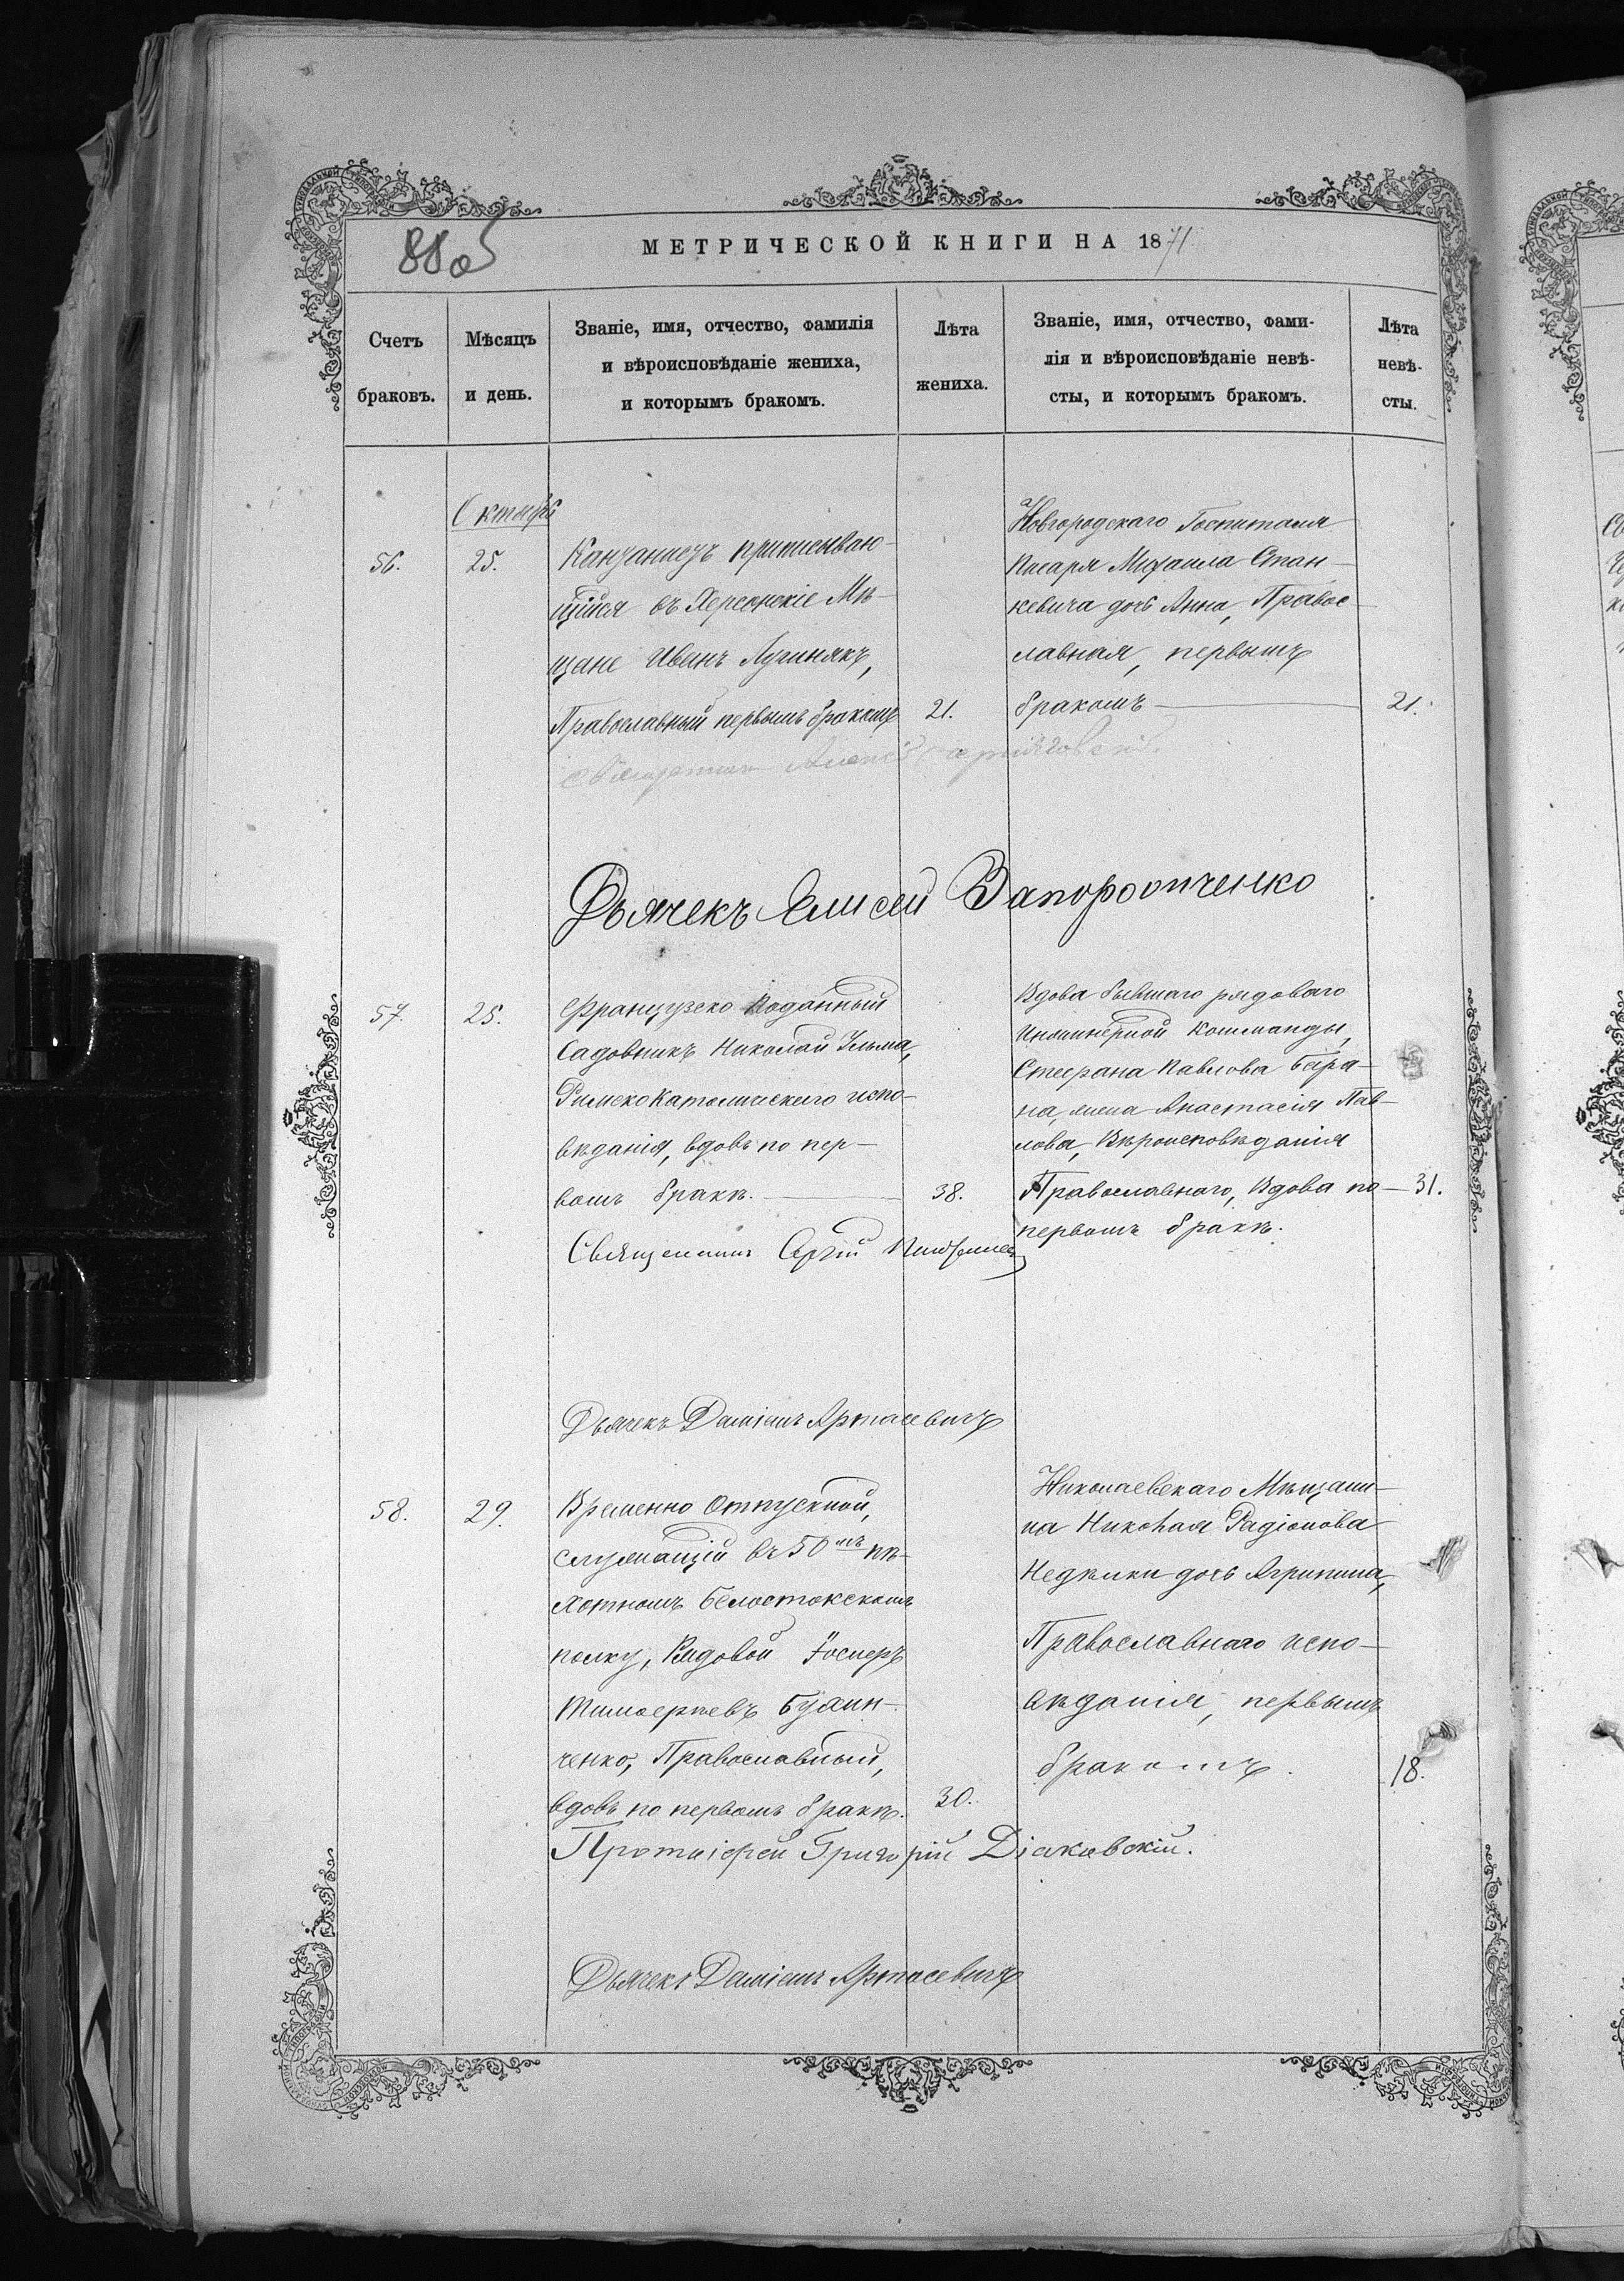 88 об
МЕТРИЧЕСКОЙ КНИГИ НА 1871
Счетъ браковъ.
Мѣсяцъ и день.
Званіе, имя, отчество, фамилія
и вѣроисповѣданіе жениха,
и которымъ бракомъ.
Лѣта жениха.
Званіе, имя, отчество, фами-
лія и вѣроисповѣданіе невѣ-
сты, и которымъ бракомъ.
Лѣта невѣ-
сты.
Октябрь
56.
25.
приписываю-
щійся въ Херсонскіе Мѣ-
щане Иванъ Лугинякъ,
Православный первымъ бракомъ
21.
Новгородскаго Госпиталя
Писаря Михаила Стан-
кевича дочь Анна, Правос-
лавная, первымъ
бракомъ
21.
Священник
Дьячекъ Елисей
57.
25.
Французско Подданный
Садовникъ Николай Ульма,
Римско Католическаго испо-
вѣданія, вдовъ по пер-
вомъ бракѣ.
38.
Вдова бывшаго рядоваго
Инжинерной комманды,
Стефана Павлова Бара-
на, жена Анастасія Пав-
лова, Вѣроисповѣданія
Православнаго, Вдова по
31.
первомъ бракѣ.
Священникъ Сергій
Дьячекъ Даміанъ Артасевичъ
58.
29.
Временно Отпускной,
служащій въ 50мъ пѣ-
хотномъ Белостокскомъ
полку, Рядовой Іосифъ
Тимофѣевъ Бухин-
ченко, Православный,
вдовъ по первомъ бракѣ.
30.
Николаевскаго Мѣщани-
на Николая Радіонова
Недѣлки дочь Агрипина,
Православнаго испо-
вѣданія, первымъ
бракомъ.
18.
Протоіерей Григорій Діаковскій.
Дьячекъ Даміанъ Артасевичъ